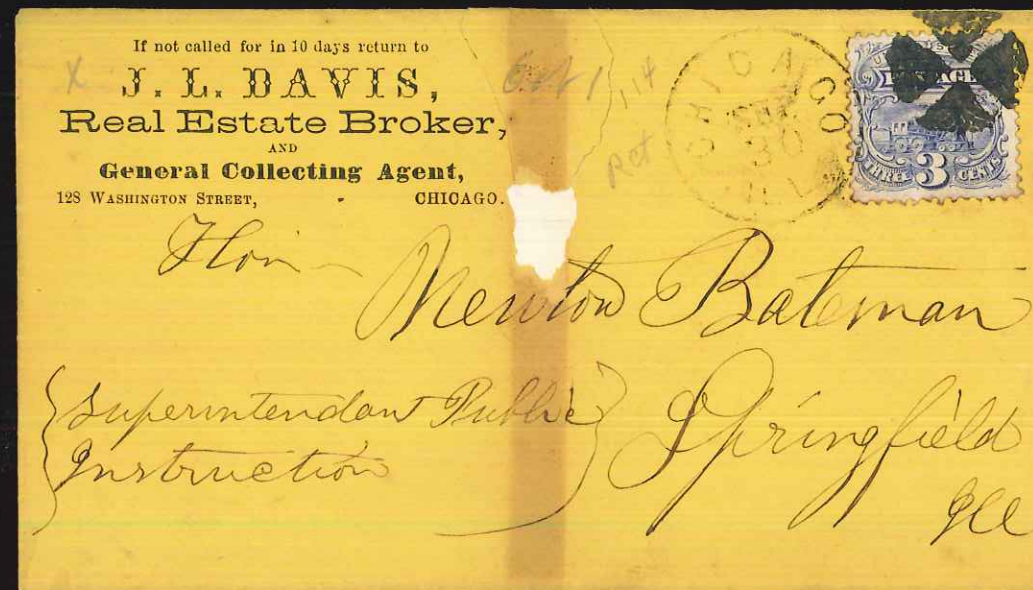 If not called for in 10 days return to
J. L. DAVIS,
Real Estate Broker,
AND
General Collecting Agent,
128 WASHINGTON STREET, CHICAGO.
CHICAGO
30
ILL
POSTAGE
THREE 3 CENTS
Hon
Newton Bateman
{Superintendant Public
Instruction}
Springfield
Ill